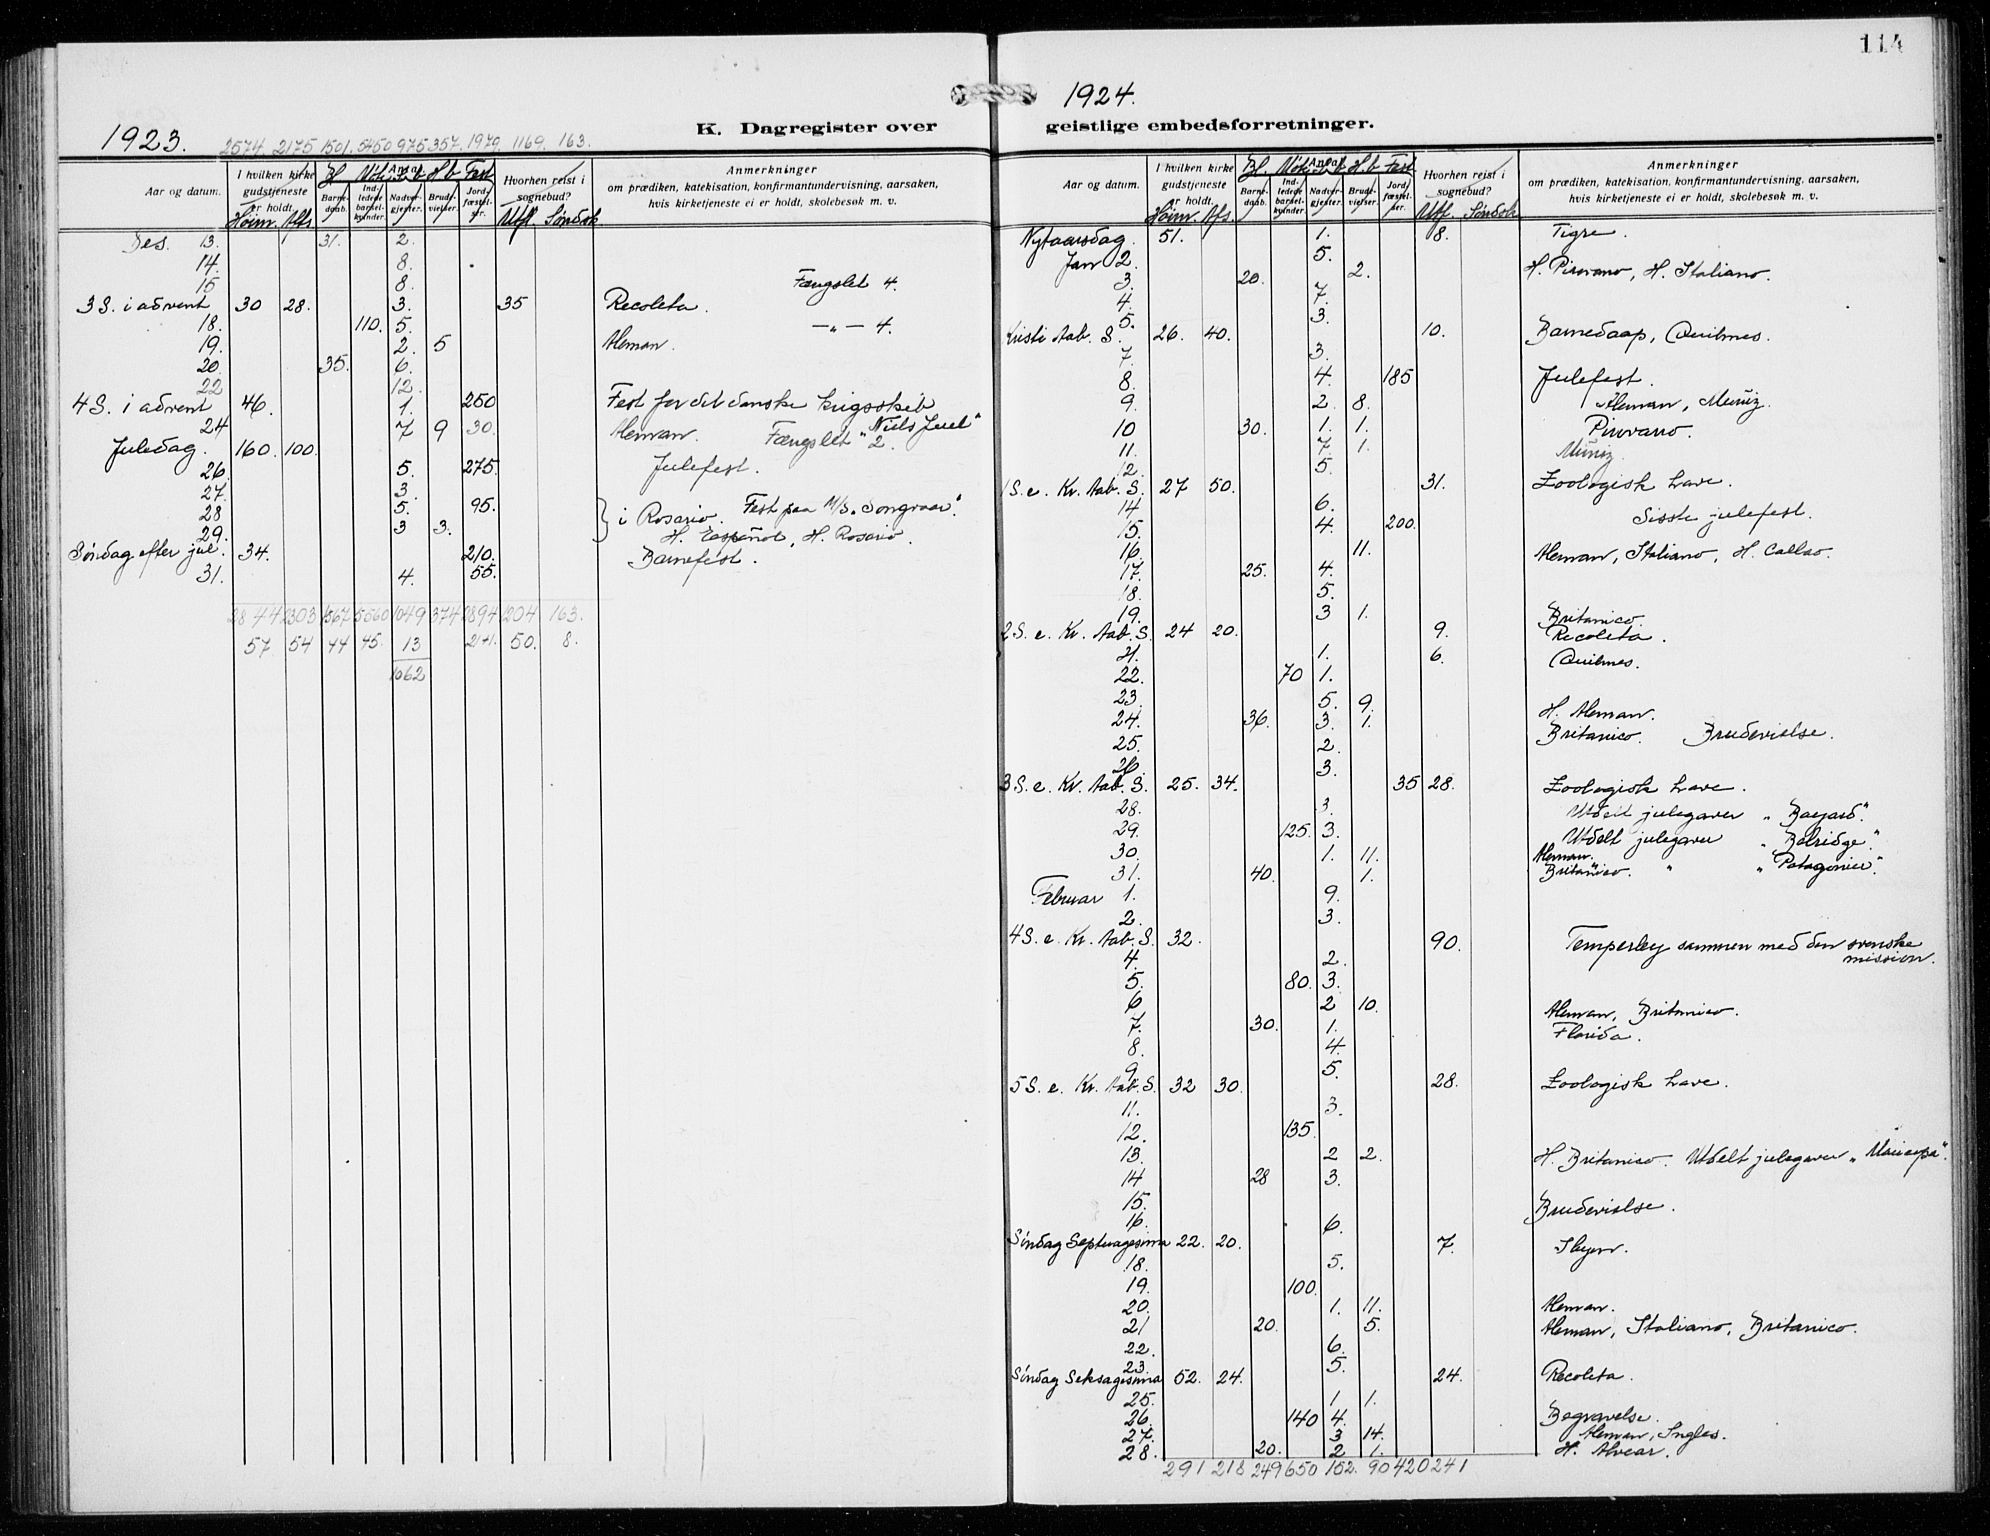 114
1923.
2574. 2175 1501. 5450 975 357. 1979. 1169. 163.
K. Dagregister over
Aar og datum. I hvilken kirke gudstjeneste er holdt. Antal Barnedaab. Indledede barselkvinder. Nadvergjester. Brudevielser. Jordfæstelser. Hvorhen reist i sognebud? Anmerkninger
om prædiken, katekisation, konfirmantundervisning, aarsaken,
hvis kirketjeneste ei er holdt, skolebesøk m. v.
Høim. Afts. Utfl.
Des. 13. 31. 2.
14. 8.
15 8. Fængslet 4.
3 S. i advent 30 28. 3. 35 Recoleta.
18. 110. 5. — „ — 4.
19. 2. 5 Aleman.
20. 35. 6.
22 12.
4 S. i advent 46. 1. 250 Fest for det danske krigsskib
24 7 9 30. Aleman. Fængslet 2. "Niels Juel"
Juledag. 160. 100.
26. 5. 275. Julefest.
27. 3.
28 5. 95. i Rosario. Fest paa M/S. Songvaar."
29. 3 3. H. Español, H. Rosario.
Søndag efter jul. 34. 210. Barnefest.
31. 4. 55.
2844 2303 1567 5560 1049 374 2894 1204 163.
57. 54 44 45. 13 21+1. 50. 8.
1062
1924.
geistlige embedsforretninger.
Aar og datum. I hvilken kirke gudstjeneste er holdt. Antal Barnedaab. Indledede barselkvinder. Nadvergjester. Brudevielser. Jordfæstelser. Hvorhen reist i sognebud? Anmerkninger
om prædiken, katekisation, konfirmantundervisning, aarsaken,
hvis kirketjeneste ei er holdt, skolebesøk m. v.
Høim. Afts. Utf.
Nytaarsdag. 51. 1. 8. Tigre.
Jan 2. 5.
3. 20. 2. H. Pirovano, H. Italiano.
4. 7.
5. 3.
Kristi Aab. S. 26. 40. 10. Barnedaap, Quilmes.
7. 3.
8. 4. 185 Julefest.
9. 2. 8. Aleman, Muniz.
10 30. 1. 1. Pirovano.
11. 7. 1. Muniz
12. 5.
1 S. e. Kr. Aab. S. 27 50. 31. Zoologisk have.
14 6.
15. 4. 200. Sisste julefest.
16. 11. Aleman, Italiano, H. Callao.
17. 25. 4.
18. 5.
19. 3 1. Britanico.
2 S. e. Kr. Aab. S. 24 20. 9. Recoleta.
21. 1. 6. Quilmes.
22. 70 1.
23. 5. 9. H. Aleman.
24. 36. 3. 1. Britanico. Brudevielse.
25. 2.
26 3.
3 S. e. Kr. Aab. S. 25. 34. 35 28. Zoologisk have.
28. 3. Utdelt julegaver "Bayard."
29. 125. 3. Utdelt julegaver "Belridge."
30. 1. 11. Aleman.
31. 40. 1. Britanico. " "Patagonier."
Februar 1. 9.
2. 3.
4 S. e. Kr. Aab. S. 32. 90. Temperley sammen med den svenske
4. 2. mission.
5. 80. 3.
6 2 10. Aleman, Britanico.
7. 30. 1. Florida.
8. 4.
9 5.
5 S. e. Kr. Aab. S. 32 30. 28. Zoologisk have.
11. 3.
12. 135.
13. 2 2. H. Britanico. Utdelt julegaver
14 28 3.
15. Brudevielse.
16. 6.
Søndag Septuagesima 22. 20. 7.
18. 5.
19. 100.
20. 1. 11. Aleman.
21 20. 5. Aleman, Italiano, Britanico.
22. 6.
23. 5.
Søndag Seksagesima 52. 24. 24. Recoleta.
25. 1 1.
26. 140 4. Begravelse.
27. 3 14. Aleman, Ingles.
28. 20. 2 1. H. Alvear.
291 218 249 650 152. 90 420 241